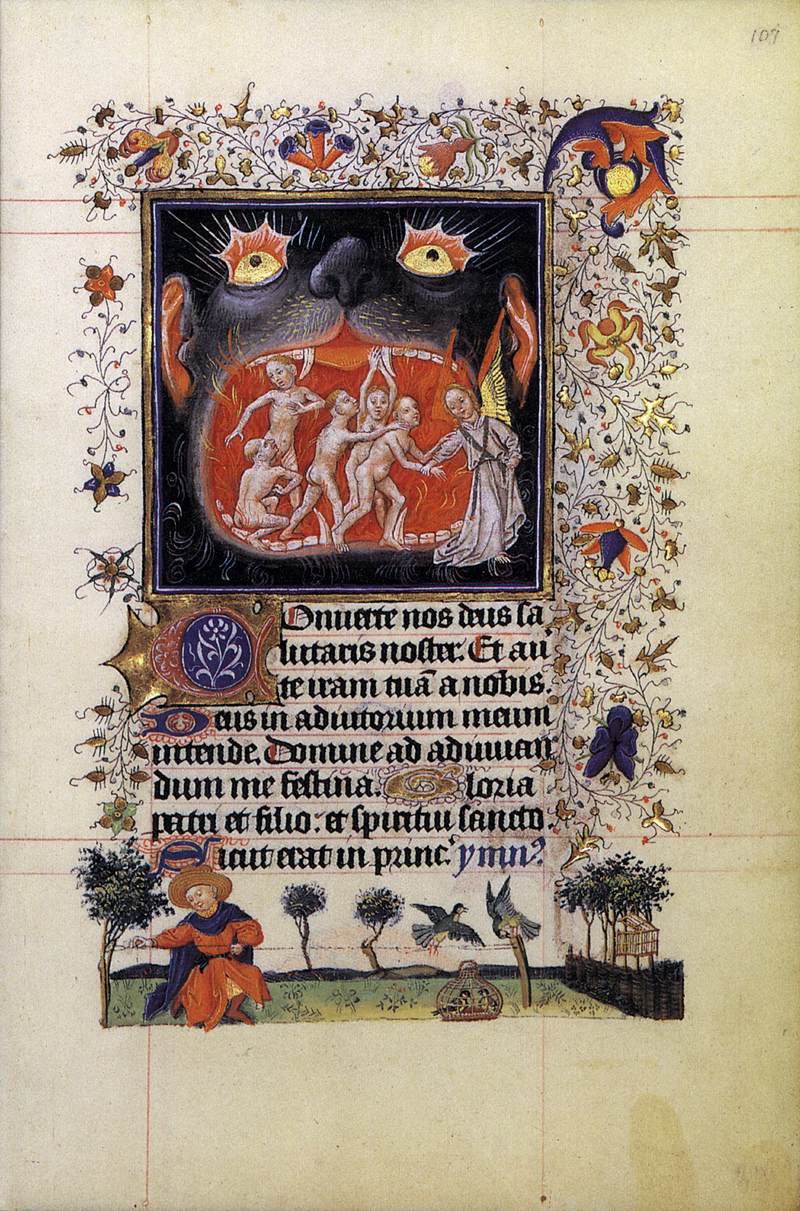 107
Conuerte nos deus sa
lutaris noster. Et au
te iram tuã a nobis.
Deus in adiutorium meum
intende. Domine ad adiuuan
dum me festina. Gloria
patri et filio: et spiritui sancto
Sicut erat in princ. ymn